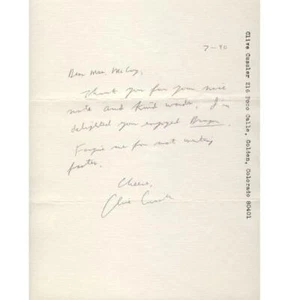 7-90
Dear Mrs.
Thank you for your nice
note and kind words. I'm
delighted you enjoyed Dragon.
Forgive me for not writing
faster.
Cheers,
Clive Cussler
Clive Cussler Calle, Golden, Colorado 80401